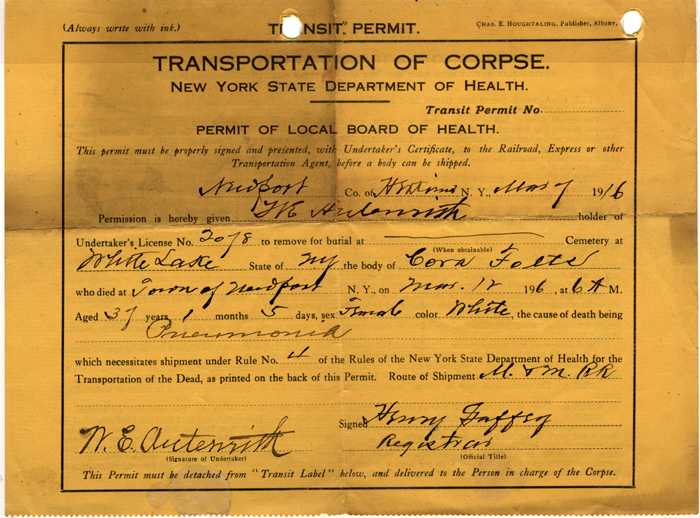 (Always write with ink.) TRANSIT PERMIT. CHAS. E. HOUGHTALING, Publisher, Albany,
TRANSPORTATION OF CORPSE.
NEW YORK STATE DEPARTMENT OF HEALTH.
Transit Permit No.
PERMIT OF LOCAL BOARD OF HEALTH.
This permit must be properly signed and presented, with Undertaker's Certificate, to the Railroad, Express or other
Transportation Agent, before a body can be shipped.
Newport Co. of N. Y., Mar 1916
Permission is hereby given W E Autenrith holder of
Undertaker's License No. 2078 to remove for burial at Cemetery at
(When obtainable)
White Lake State of NY the body of Cora Folts
who died at Town of Newport N. Y., on Mar. 196, at 6 A M.
Aged 37 years, 1 months 5 days, sex Female color White, the cause of death being
Pneumonia
which necessitates shipment under Rule No. 4 of the Rules of the New York State Department of Health for the
Transportation of the Dead, as printed on the back of this Permit. Route of Shipment M. & M. RR
Signed Henry
W. E. Autenrith Registrar
(Signature of Undertaker) (Official Title)
This Permit must be detached from "Transit Label" below, and delivered to the Person in charge of the Corpse.